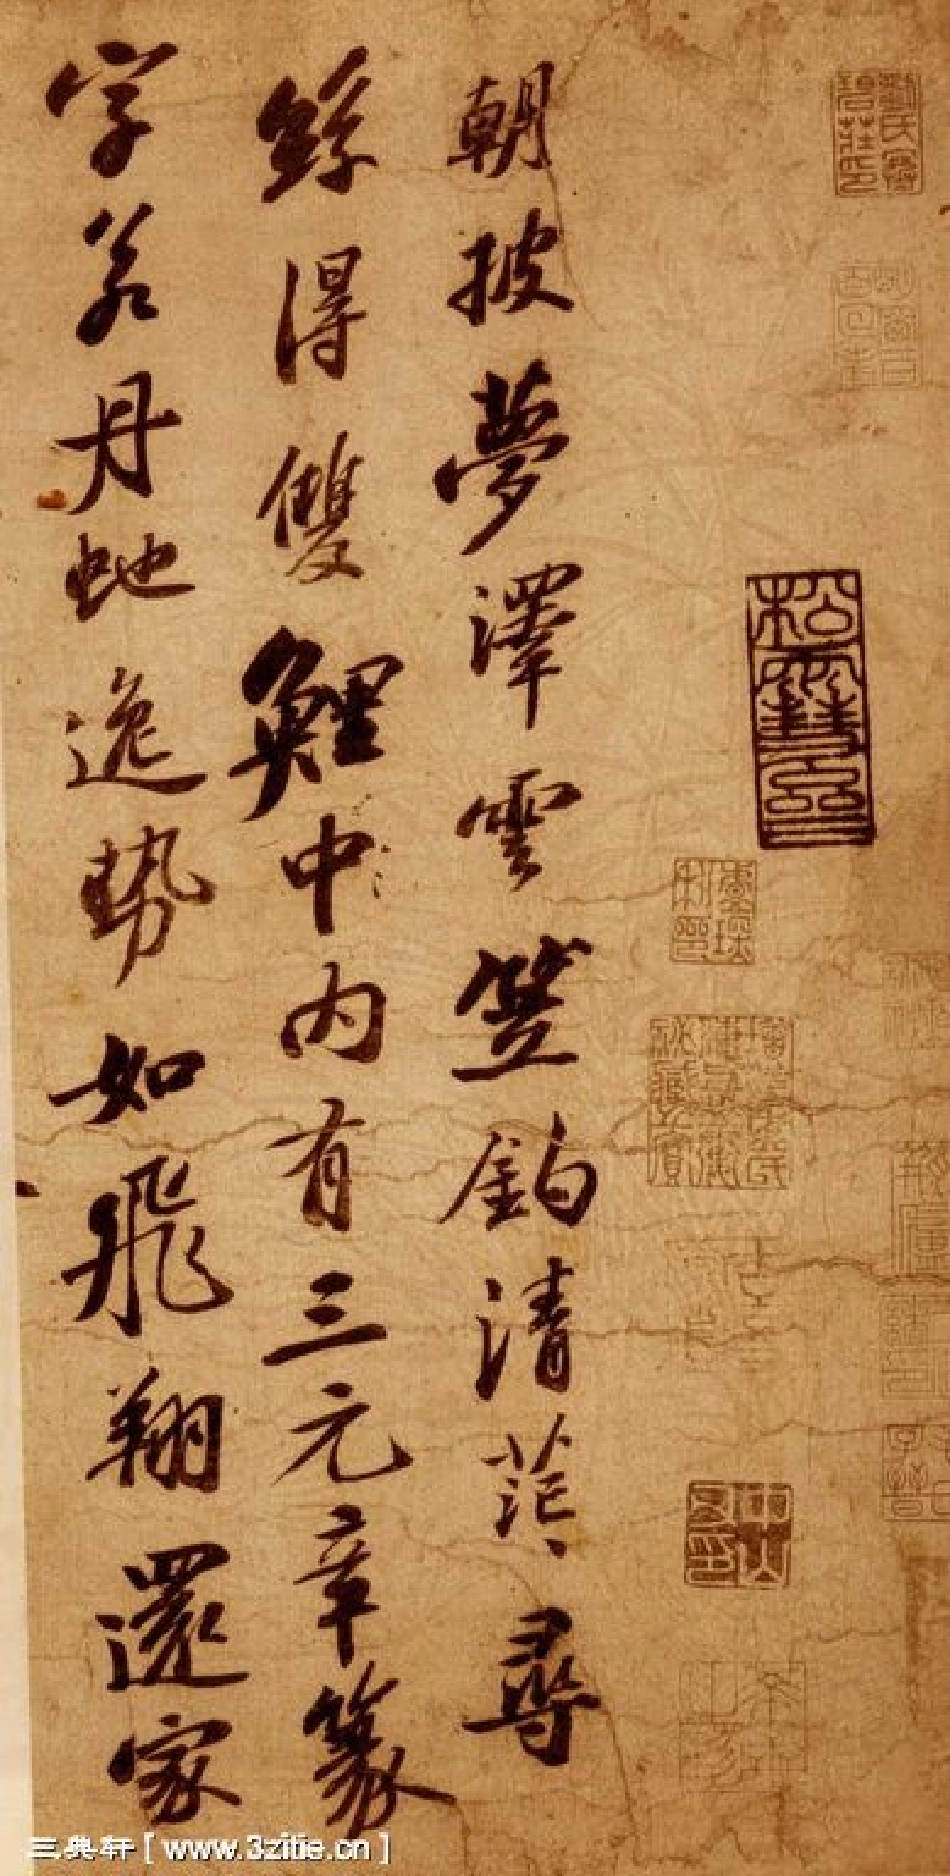 朝披夢澤雲笠釣清茫〻尋
絲得雙鯉中內有三元章篆
字若丹虵逸勢如飛翔還家
三典轩[ www.3zitie.cn ]